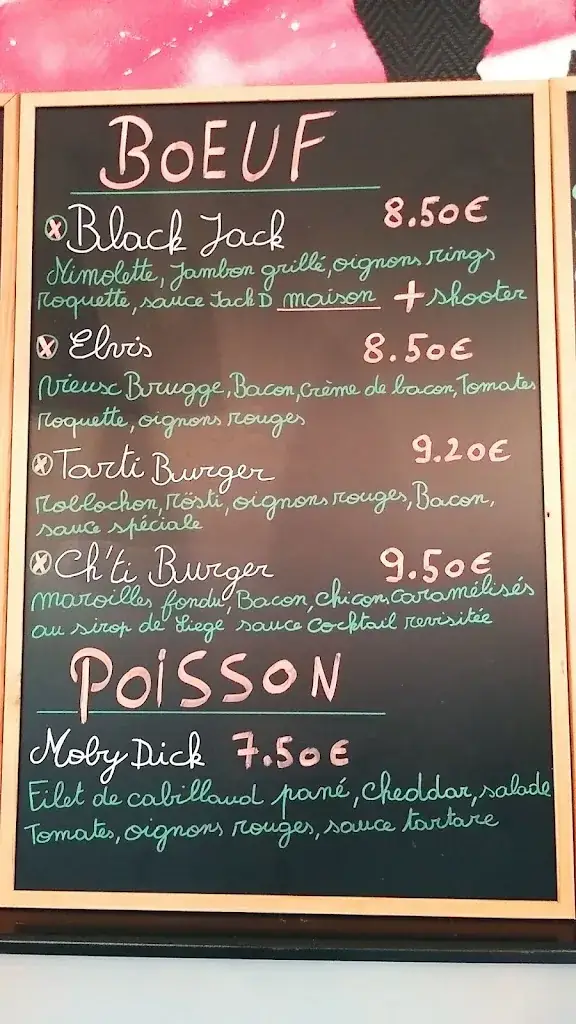 BOEUF
Black Jack 8.50€
Mimolette, Jambon grillé, oignons rings
Roquette, sauce Jack D maison + shooter
Elvis 8.50€
Vieux Brugge, Bacon, crème de bacon, Tomates
Roquette, oignons rouges
Tarti Burger 9.20€
Roblochon, Rösti, oignons rouges, Bacon,
sauce spéciale
Ch'ti Burger 9.50€
Maroilles fondu, Bacon, chicons caramélisés
au sirop de Liege sauce cocktail revisitée
POISSON
Moby Dick 7.50€
Filet de cabillaud pané, cheddar, salade
Tomates, oignons rouges, sauce tartare